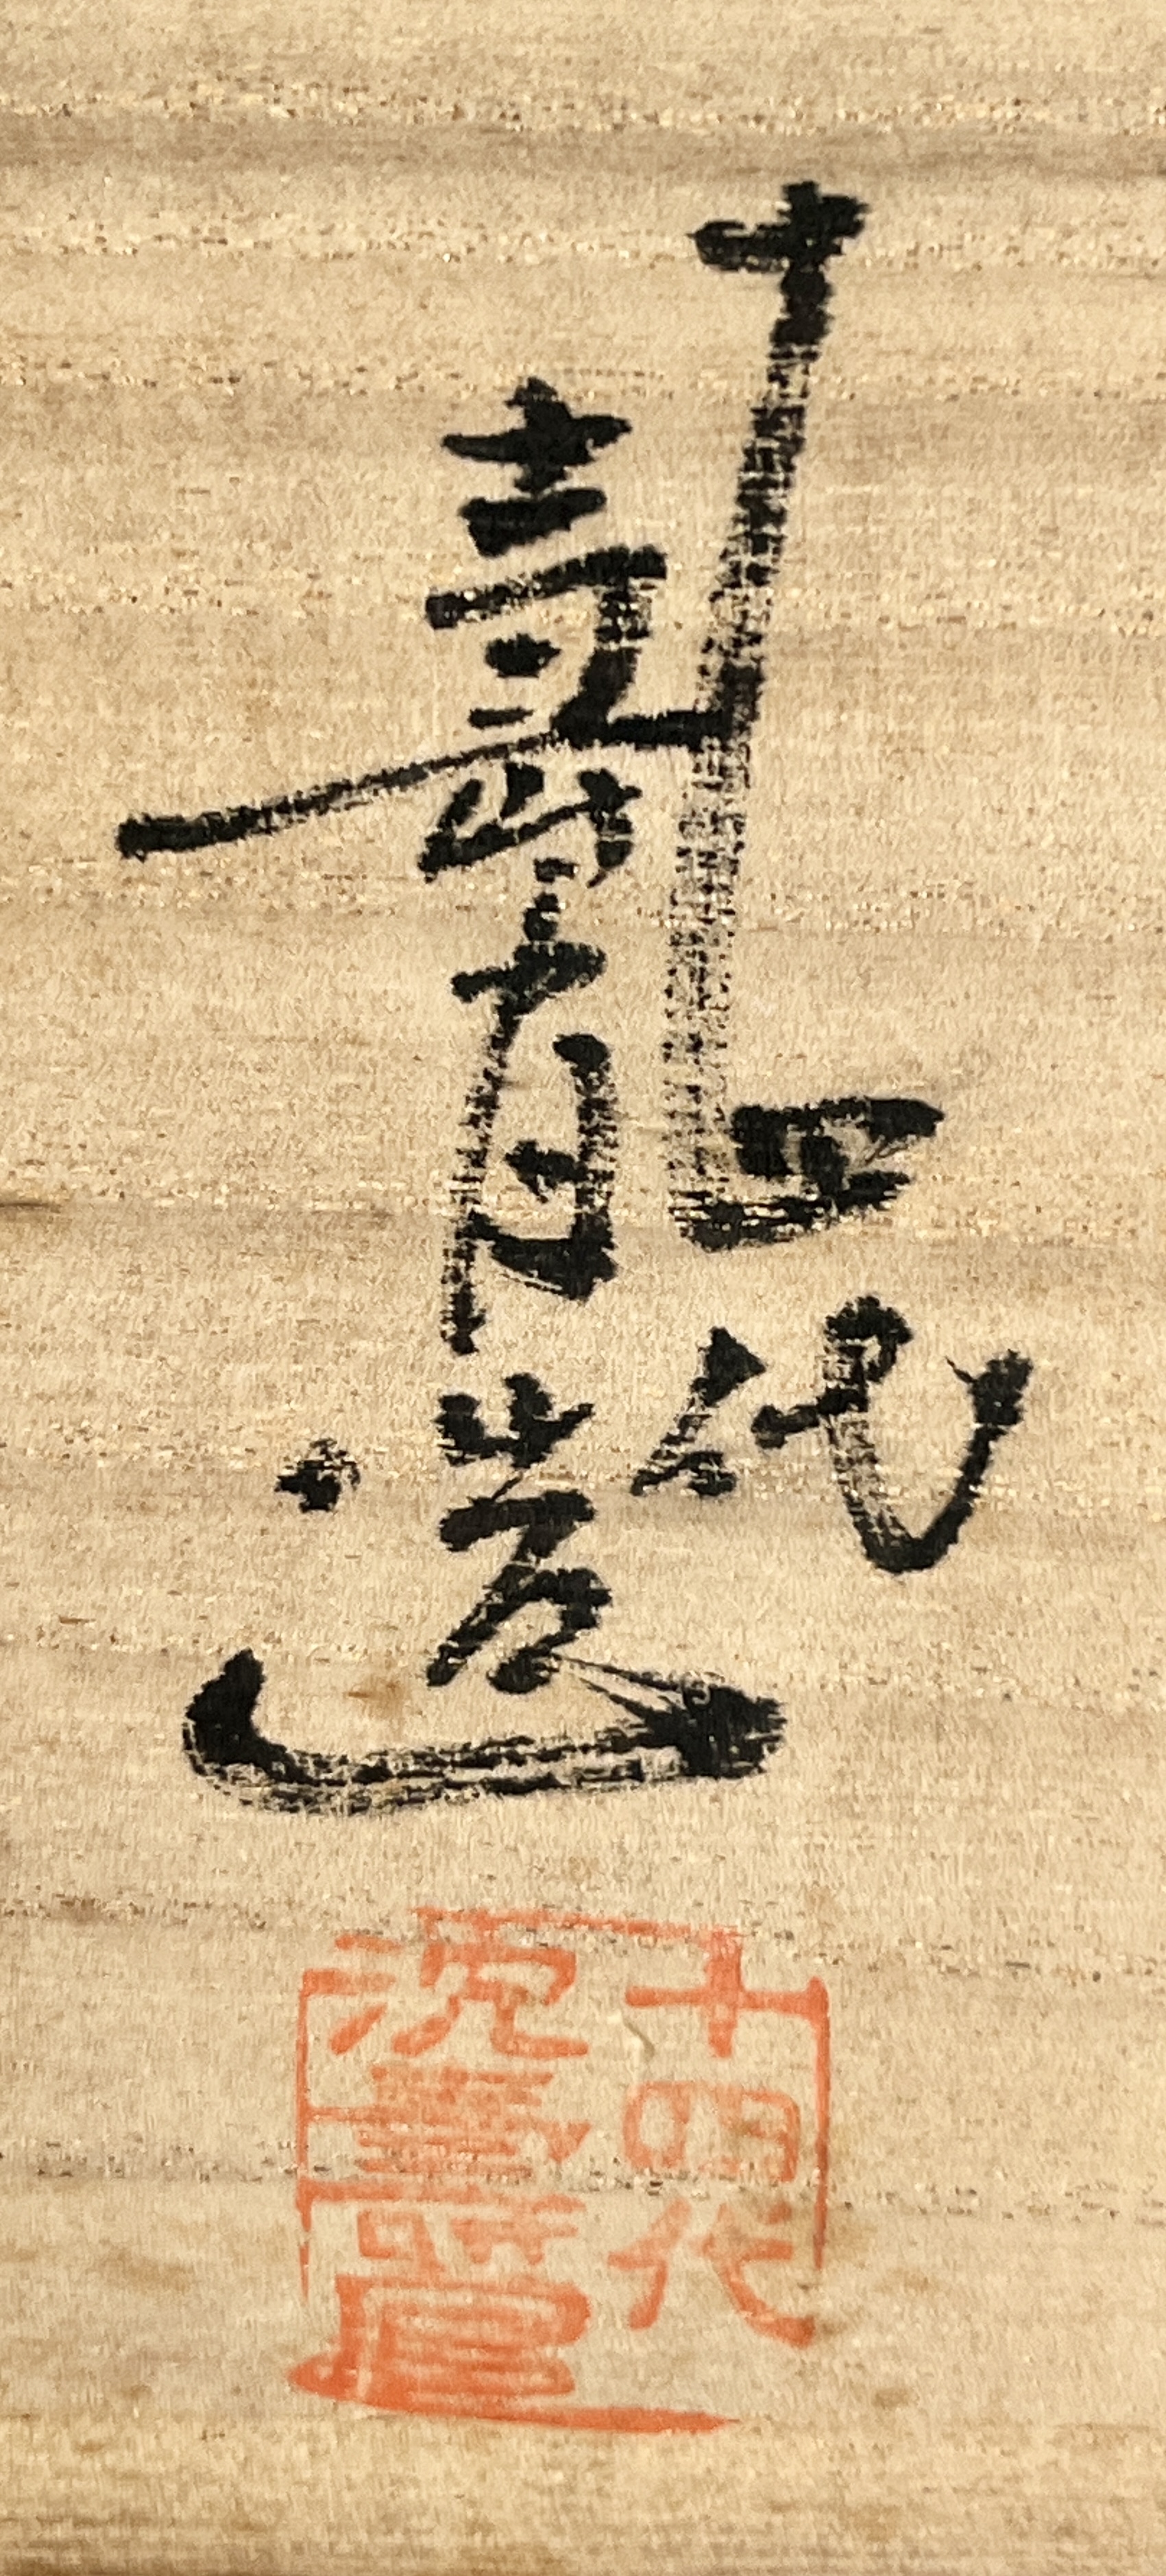 十四代
壽官造
十四代
沈壽官